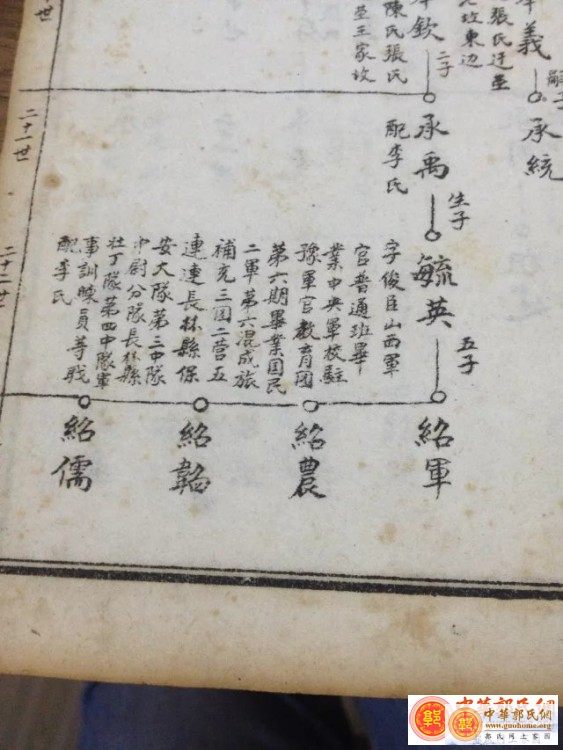 義
張氏迁茔
坟東边
承統
欽
陳氏張氏
茔王家坟
二子
承禹
配李氏
生子
毓英
字俊臣山西軍
官普通班畢
業中央軍校駐
豫軍官教育团
第六期畢業国民
二軍第六混成旅
補充三团二营五
連連長林縣保
安大隊第三中隊
中尉分隊長林縣
壯丁隊第四中隊軍
事訓練員等職
配李氏
五子
紹軍
紹農
紹韜
紹儒
世
二十一世
二十二世
中華郭氏網
www.guohome.org
郭氏网上家园